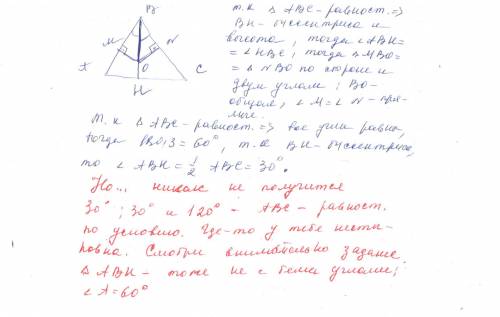 B
M
N
A
O
C
H
т.к Δ ABC - равност. =>
BH - биссектриса и
высота, тогда ∠ABH =
= ∠HBC; тогда Δ MBO =
= Δ NBO по стороне и
двум углам; BO-
общая, ∠M = ∠N - пря-
мые.
т.к Δ ABC - равност. => все углы равны,
тогда = 60°, т.к BH - биссектриса,
то ∠ ABH = 1/2 ABC = 30°.
Но... никак не получится
30°; 30° и 120° - ABC - равност.
по условию. Где-то у тебя неты-
ковка. Смотри внимательно задание
Δ ABH - тоже не с теми углами;
∠ A = 60°